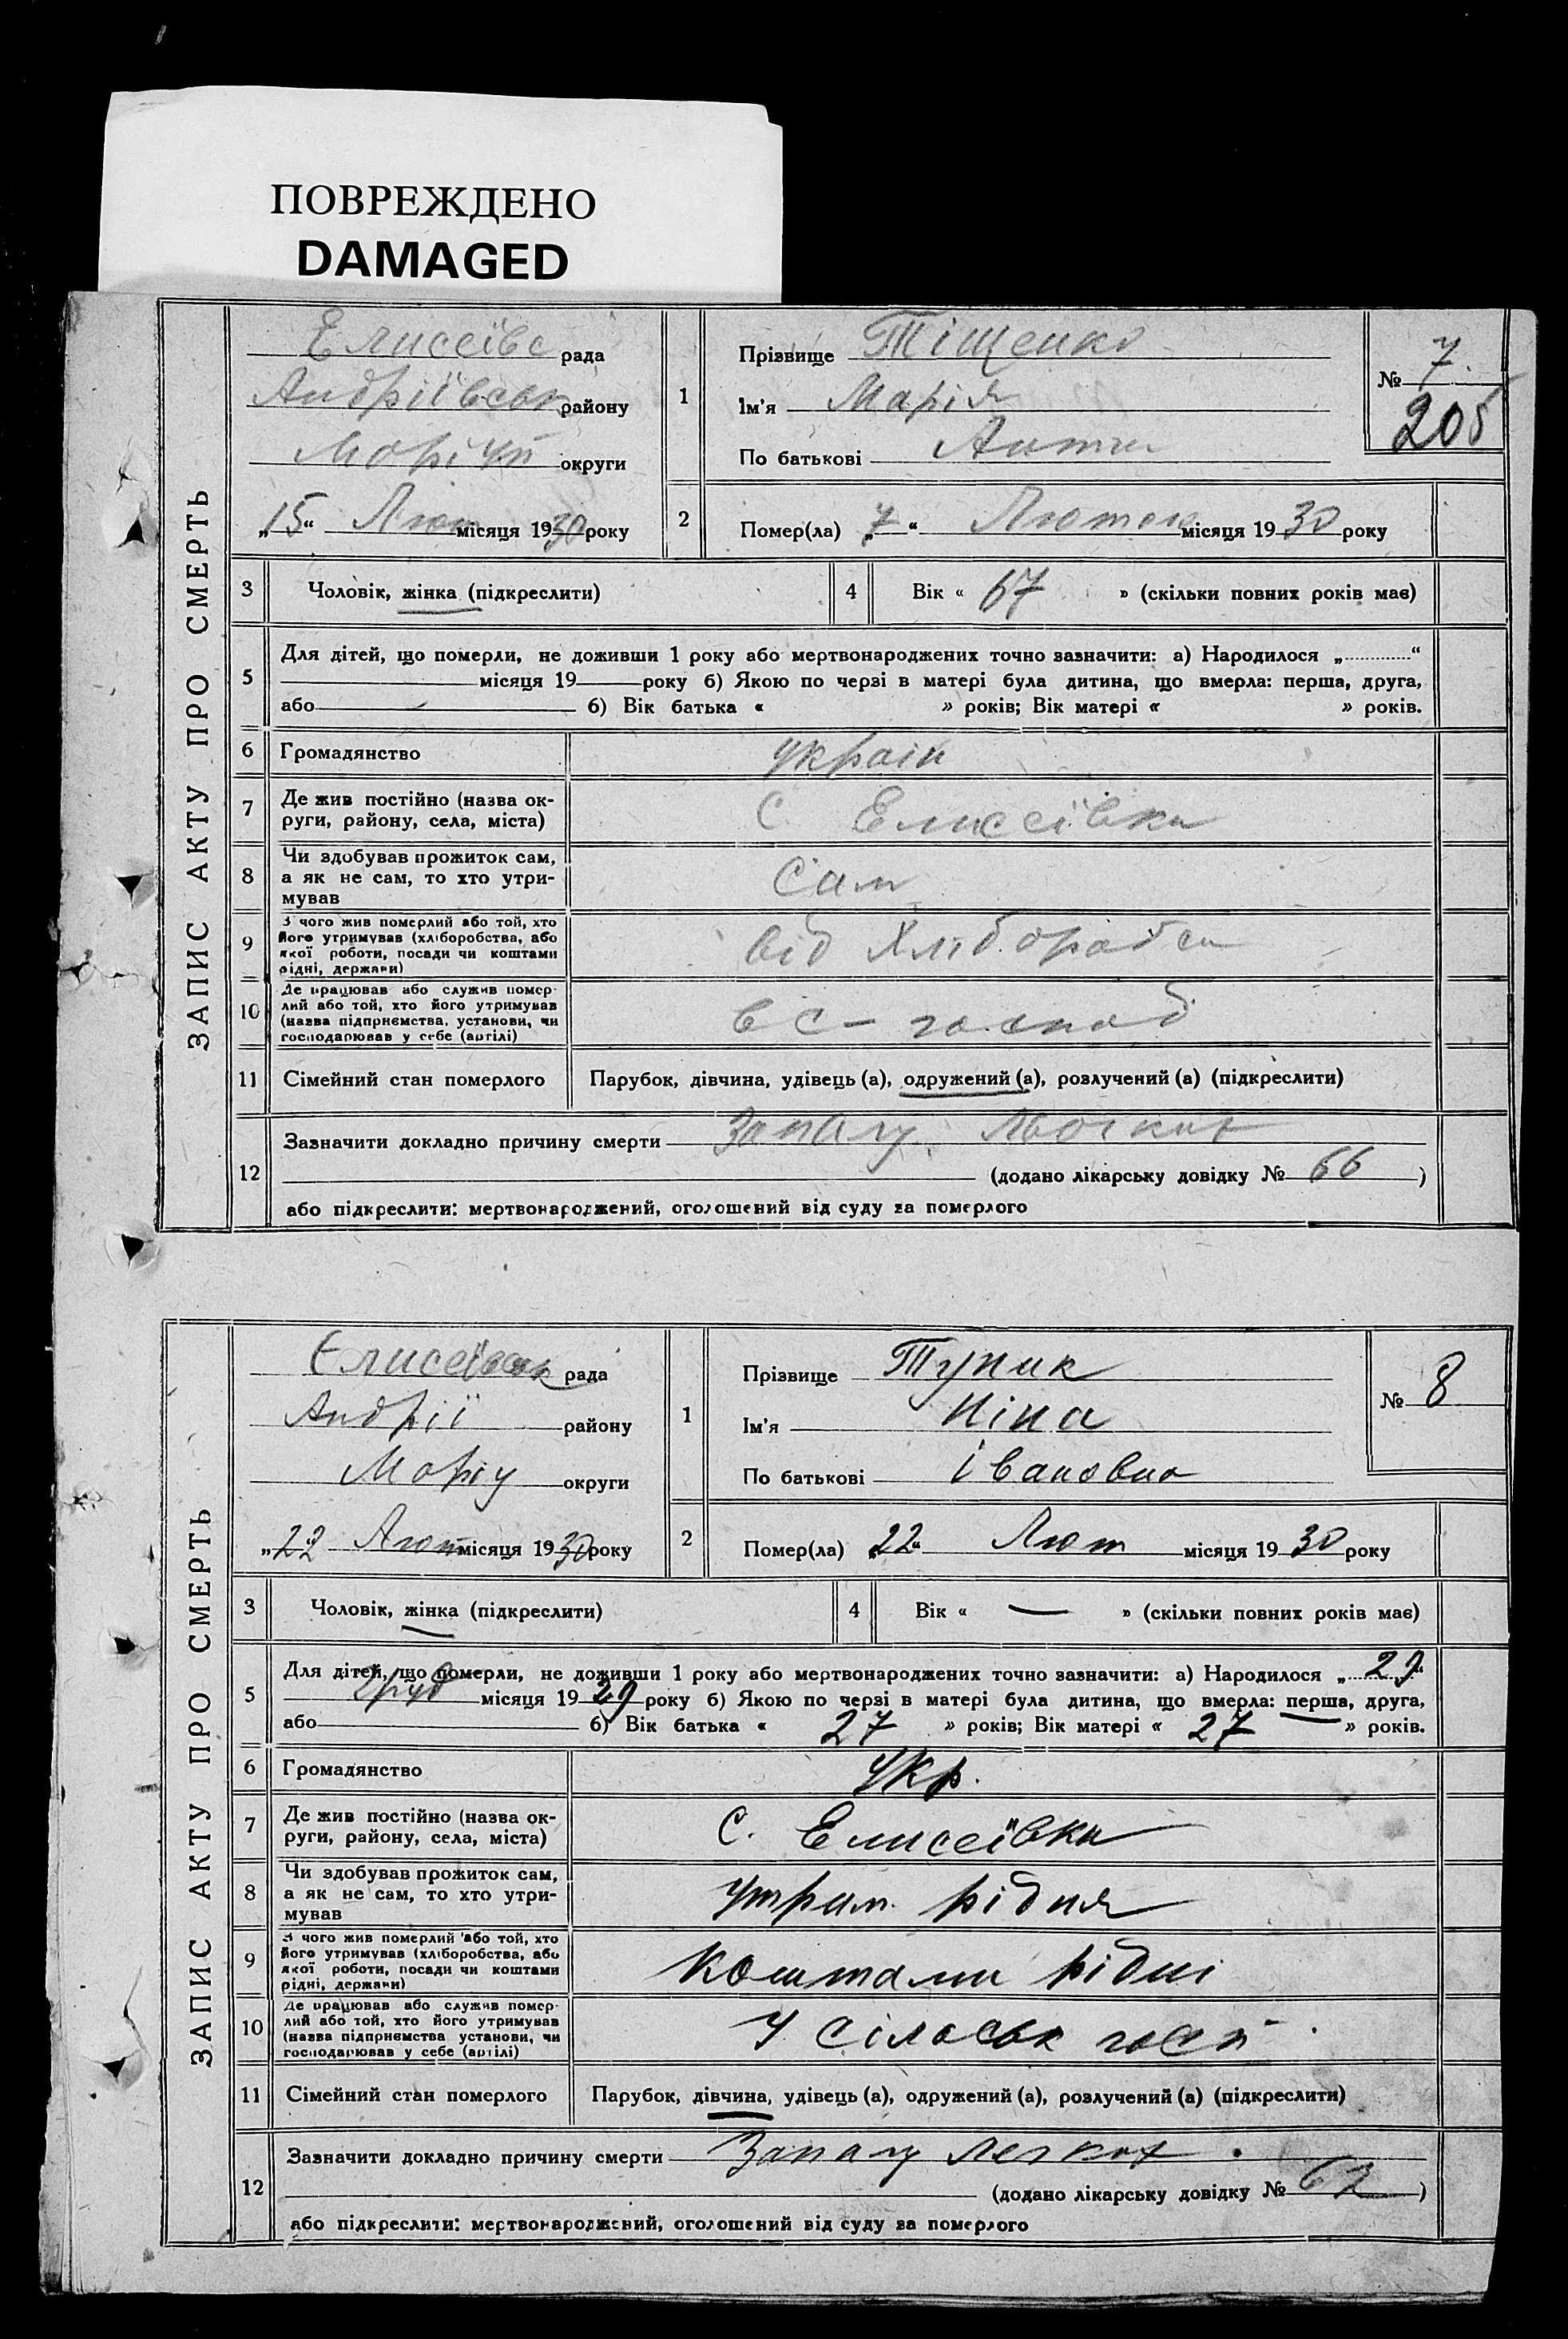 ПОВРЕЖДЕНО
DAMAGED
ЗАПИС АКТУ ПРО СМЕРТЬ
Елисеївс рада
Андріївськ району
Моріуп округи
„15“ Лют місяця 1930 року
1
Прізвище Тіщенко
Ім’я Марія
По батькові Антон
№ 7.
205
2
Помер(ла) „7“ Лютого місяця 1930 року
3
Чоловік, жінка (підкреслити)
4
Вік « 67 » (скільки повних років має)
5
Для дітей, що померли, не доживши 1 року або мертвонароджених точно зазначити: а) Народилося „.............“
місяця 19 року б) Якою по черзі в матері була дитина, що вмерла: перша, друга,
або б) Вік батька « » років; Вік матері « » років.
6
Громадянство
україн
7
Де жив постійно (назва ок-
руги, району, села, міста)
С Елисеївка
8
Чи здобував прожиток сам,
а як не сам, то хто утри-
мував
Сам
9
З чого жив померлий або той, хто
його утримував (хліборобства, або
якої роботи, посади чи коштами
рідні, держави)
від Хліборобст
10
Де працював або служив помер-
лий або той, хто його утримував
(назва підприємства, установи, чи
господарював у себе (артілі)
в с – господ
11
Сімейний стан померлого
Парубок, дівчина, удівець (а), одружений (а), розлучений (а) (підкреслити)
12
Зазначити докладно причину смерти Запалу
(додано лікарську довідку № 66 )
або підкреслити: мертвонароджений, оголошений від суду за померлого
ЗАПИС АКТУ ПРО СМЕРТЬ
Єлисеївськ рада
Андрії району
Моріу округи
„22“ Лют місяця 1930 року
1
Прізвище Тупик
Ім’я Ніна
По батькові Івановна
№ 8
2
Помер(ла) „22“ Лют місяця 1930 року
3
Чоловік, жінка (підкреслити)
4
Вік « — » (скільки повних років має)
5
Для дітей, що померли, не доживши 1 року або мертвонароджених точно зазначити: а) Народилося „29“
Груд місяця 1929 року б) Якою по черзі в матері була дитина, що вмерла: перша, друга,
або б) Вік батька « 27 » років; Вік матері « 27 » років.
6
Громадянство
Укр.
7
Де жив постійно (назва ок-
руги, району, села, міста)
С. Елисеївка
8
Чи здобував прожиток сам,
а як не сам, то хто утри-
мував
Утрим. рідня
9
З чого жив померлий або той, хто
його утримував (хліборобства, або
якої роботи, посади чи коштами
рідні, держави)
Коштами рідні
10
Де працював або служив помер-
лий або той, хто його утримував
(назва підприємства установи, чи
господарював у себе (артілі)
У сільськ госп
11
Сімейний стан померлого
Парубок, дівчина, удівець (а), одружений (а), розлучений (а) (підкреслити)
12
Зазначити докладно причину смерти Запалу Легких
(додано лікарську довідку № 62 )
або підкреслити: мертвонароджений, оголошений від суду за померлого